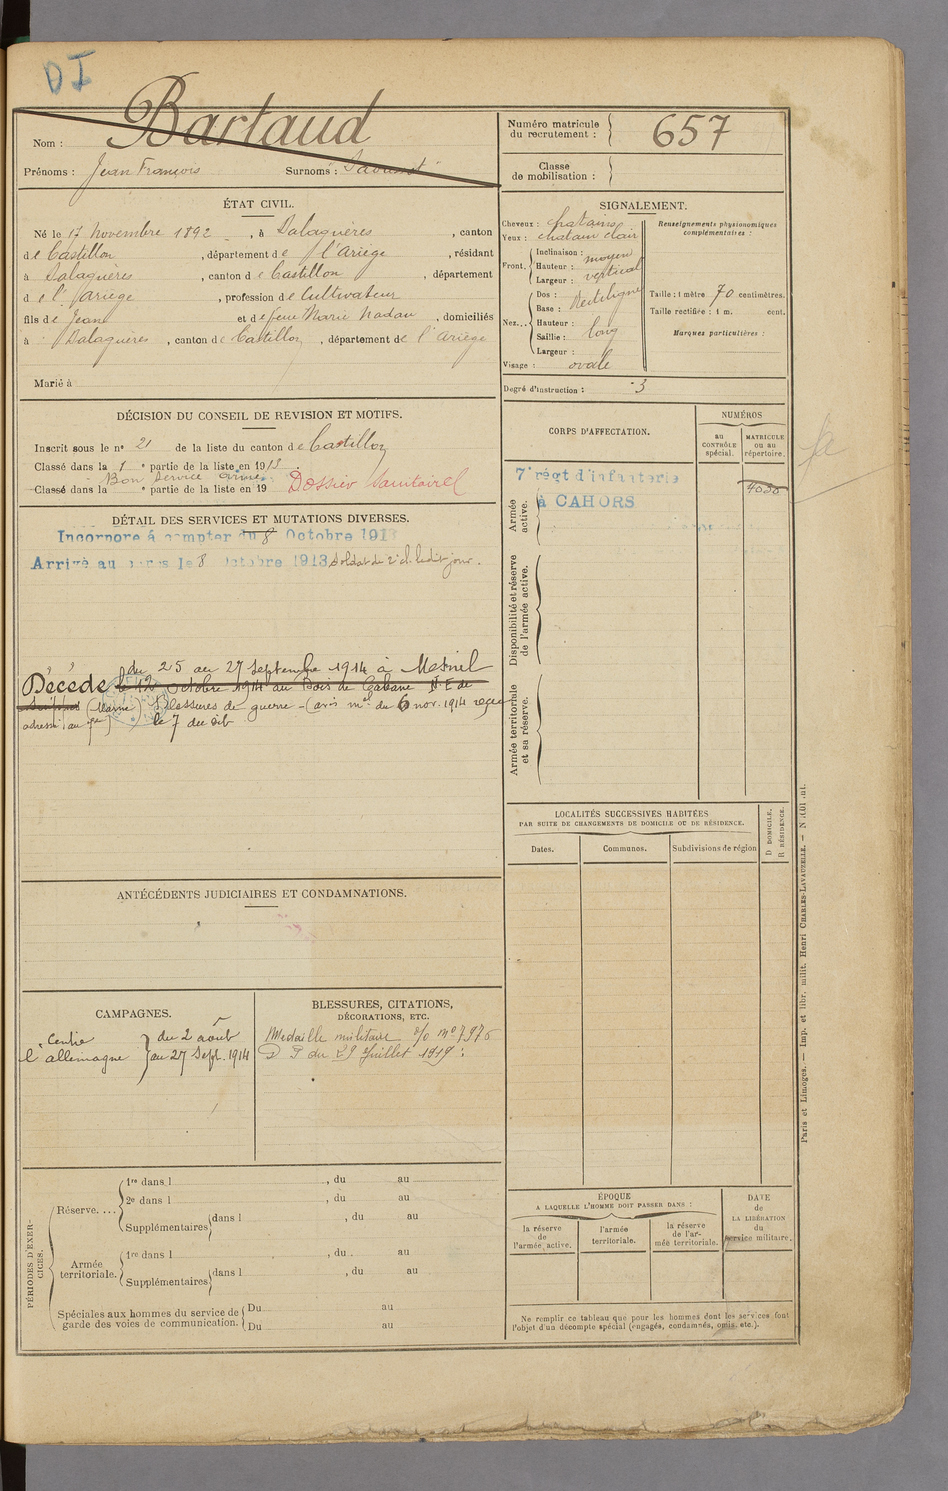 DI
Nom : Bartaud
Prénoms : Jean François Surnoms :
Numéro matricule du recrutement : 657
Classe de mobilisation :
ÉTAT CIVIL.
Né le 17 Novembre 1892, à Balaguères, canton
de Castillon, département de l'Ariège, résidant
à Balaguères, canton de Castillon, département
de l'Ariège, profession de Cultivateur
fils de Jean et de feue Marie Nadau, domiciliés
à Balaguères, canton de Castillon, département de l'Ariège
Marié à
SIGNALEMENT.
Cheveux : chatains
Yeux : chatain clair
Front. Inclinaison : moyen
Hauteur : vertical
Largeur :
Nez... Dos : Rectiligne
Base :
Hauteur :
Saillie : long
Largeur :
Visage : ovale
Renseignements physionomiques
complémentaires :
Taille : 1 mètre 70 centimètres.
Taille rectifiée : 1 m. cent.
Marques particulières :
Degré d'instruction : 3
DÉCISION DU CONSEIL DE REVISION ET MOTIFS.
Inscrit sous le n° 21 de la liste du canton de Castillon
Classé dans la 1e partie de la liste en 1913
Bon Service Armé
Classé dans la e partie de la liste en 19 Dossier Sanitaire
CORPS D'AFFECTATION.
NUMÉROS
au CONTRÔLE spécial.
MATRICULE ou au répertoire.
Armée active.
7e régt d'infanterie
à CAHORS
Disponibilité et réserve de l'armée active.
Armée territoriale et sa réserve.
DÉTAIL DES SERVICES ET MUTATIONS DIVERSES.
Incorporé à compter du 8 Octobre 1913
Arrivé au corps le 8 Octobre 1913 Soldat de 2e cl. ledit jour.
du 25 au 27 Septembre 1914 à Mesnil
Décédé le 12 Octobre 1914 au Bois de Cabane N.E de
(Marne) Blessures de guerre - (avis mel du 6 nov. 1914 reçu
le 7 du dit
LOCALITÉS SUCCESSIVES HABITÉES
PAR SUITE DE CHANGEMENTS DE DOMICILE OU DE RÉSIDENCE.
Dates.
Communes.
Subdivisions de région
D DOMICILE.
R RÉSIDENCE.
ANTÉCÉDENTS JUDICIAIRES ET CONDAMNATIONS.
CAMPAGNES.
Contre l'allemagne du 2 août
au 27 Sept. 1914
BLESSURES, CITATIONS,
DÉCORATIONS, ETC.
Médaille militaire
du 29 Juillet 1919
PÉRIODES D'EXERCICES.
Réserve....
1re dans l , du au
2e dans l , du au
Supplémentaires dans l , du au
Armée territoriale.
1re dans l , du au
Supplémentaires dans l , du au
Spéciales aux hommes du service de
garde des voies de communication.
Du au
Du au
ÉPOQUE
A LAQUELLE L'HOMME DOIT PASSER DANS :
la réserve de l'armée active.
l'armée territoriale.
la réserve de l'armée territoriale.
DATE de LA LIBÉRATION du service militaire.
Ne remplir ce tableau que pour les hommes dont les services font
l'objet d'un décompte spécial (engagés, condamnés, omis, etc.).
Paris et Limoges. — Imp. et libr. milit. Henri CHARLES-LAVAUZELLE. —